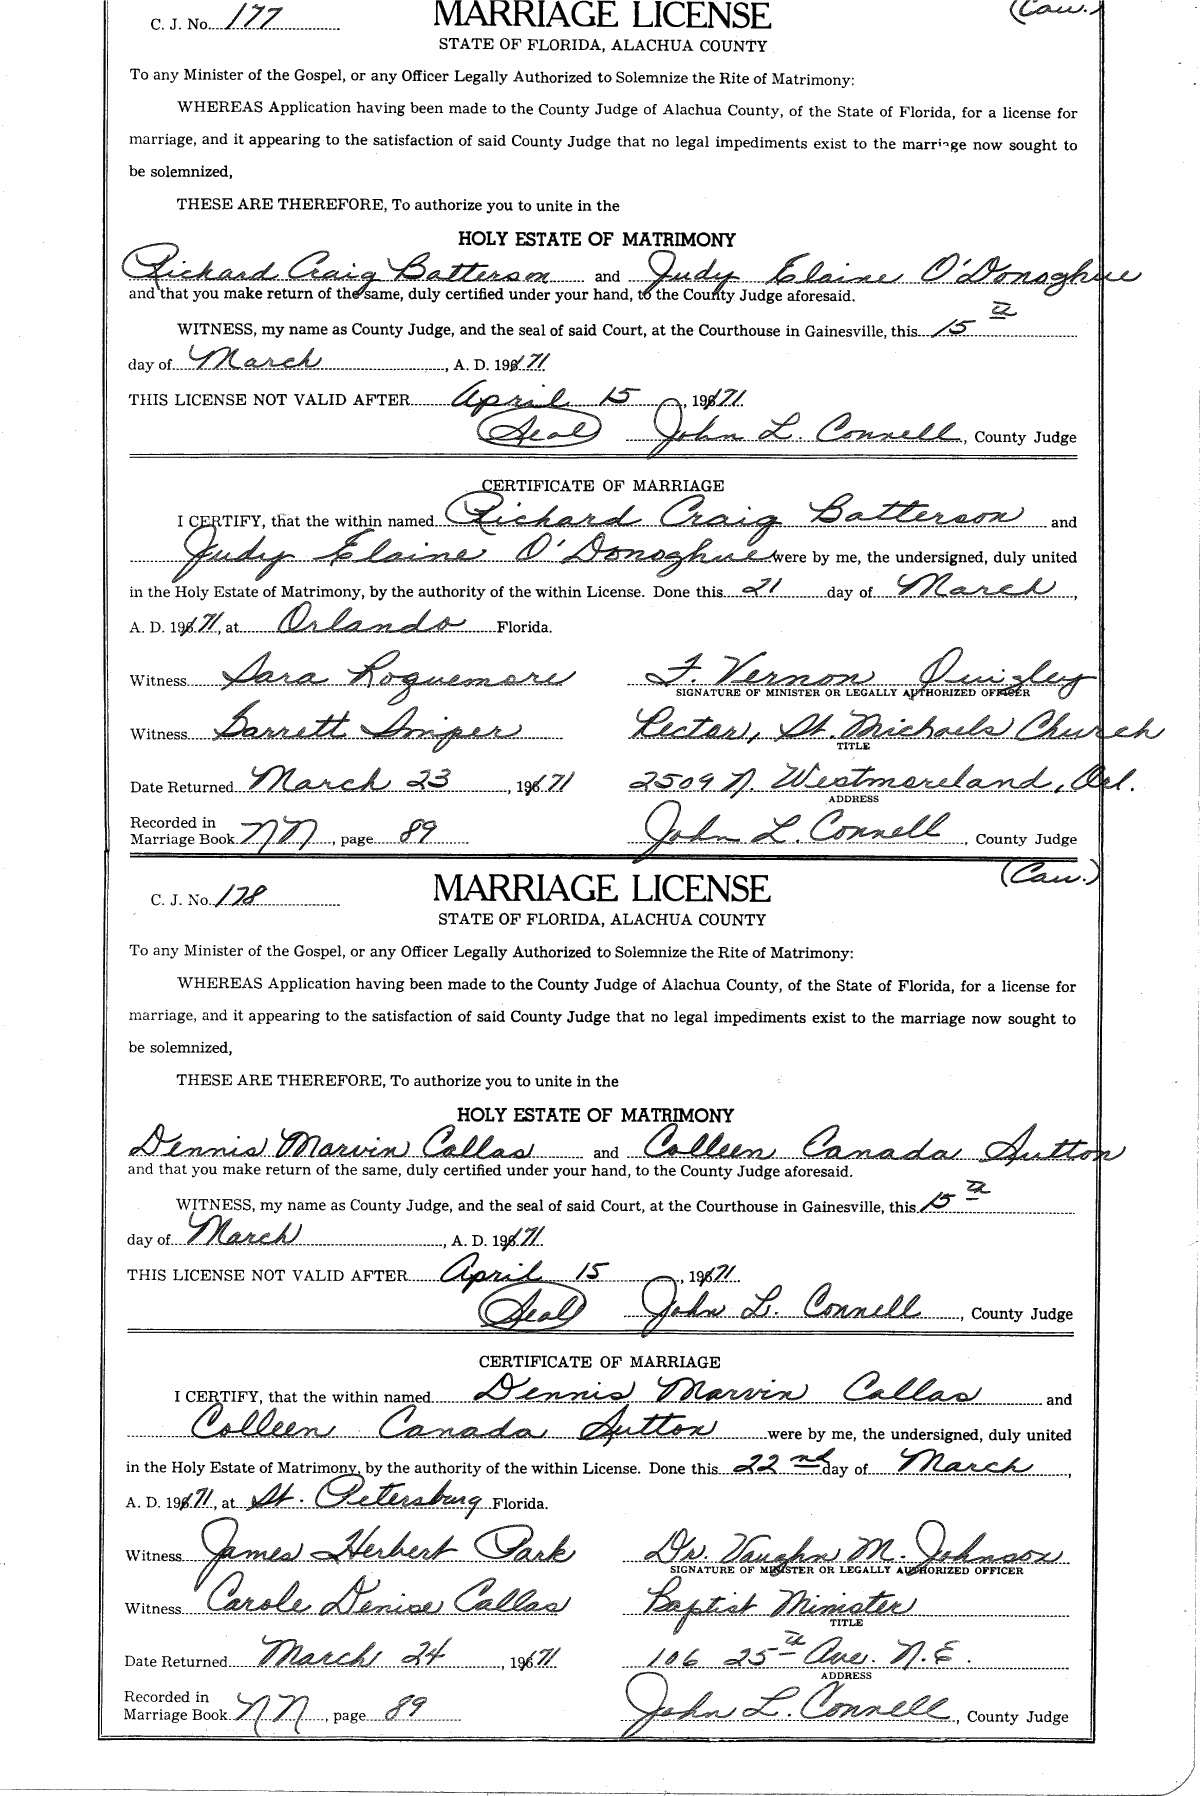 C. J. No. 177 MARRIAGE LICENSE (Cau.)
STATE OF FLORIDA, ALACHUA COUNTY
To any Minister of the Gospel, or any Officer Legally Authorized to Solemnize the Rite of Matrimony:
WHEREAS Application having been made to the County Judge of Alachua County, of the State of Florida, for a license for
marriage, and it appearing to the satisfaction of said County Judge that no legal impediments exist to the marriage now sought to
be solemnized,
THESE ARE THEREFORE, To authorize you to unite in the
HOLY ESTATE OF MATRIMONY
Richard Craig Batterson and Judy Elaine O'Donoghue
and that you make return of the same, duly certified under your hand, to the County Judge aforesaid.
WITNESS, my name as County Judge, and the seal of said Court, at the Courthouse in Gainesville, this 15th
day of March, A. D. 1971
THIS LICENSE NOT VALID AFTER April 15, 1971
(Seal) John L. Connell, County Judge
CERTIFICATE OF MARRIAGE
I CERTIFY, that the within named Richard Craig Batterson and
Judy Elaine O'Donoghue were by me, the undersigned, duly united
in the Holy Estate of Matrimony, by the authority of the within License. Done this 21 day of March,
A. D. 1971, at Orlando Florida.
Witness Sara Roguemore F. Vernon Quigley
SIGNATURE OF MINISTER OR LEGALLY AUTHORIZED OFFICER
Witness Garrett Sniper Rector, St. Michaels Church
TITLE
Date Returned March 23, 1971 2509 N. Westmoreland, Orl.
ADDRESS
Recorded in
Marriage Book NN, page 89 John L. Connell, County Judge
(Cau.)
C. J. No. 178 MARRIAGE LICENSE
STATE OF FLORIDA, ALACHUA COUNTY
To any Minister of the Gospel, or any Officer Legally Authorized to Solemnize the Rite of Matrimony:
WHEREAS Application having been made to the County Judge of Alachua County, of the State of Florida, for a license for
marriage, and it appearing to the satisfaction of said County Judge that no legal impediments exist to the marriage now sought to
be solemnized,
THESE ARE THEREFORE, To authorize you to unite in the
HOLY ESTATE OF MATRIMONY
Dennis Marvin Callas and Colleen Canada Sutton
and that you make return of the same, duly certified under your hand, to the County Judge aforesaid.
WITNESS, my name as County Judge, and the seal of said Court, at the Courthouse in Gainesville, this 15th
day of March, A. D. 1971
THIS LICENSE NOT VALID AFTER April 15, 1971
(Seal) John L. Connell, County Judge
CERTIFICATE OF MARRIAGE
I CERTIFY, that the within named Dennis Marvin Callas and
Colleen Canada Sutton were by me, the undersigned, duly united
in the Holy Estate of Matrimony, by the authority of the within License. Done this 22nd day of March,
A. D. 1971, at St. Petersburg Florida.
Witness James Herbert Park Dr. Vaughn M. Johnson
SIGNATURE OF MINISTER OR LEGALLY AUTHORIZED OFFICER
Witness Carole Denise Callas Baptist Minister
TITLE
Date Returned March 24, 1971 106 25th Ave. N.E.
ADDRESS
Recorded in
Marriage Book NN, page 89 John L. Connell, County Judge